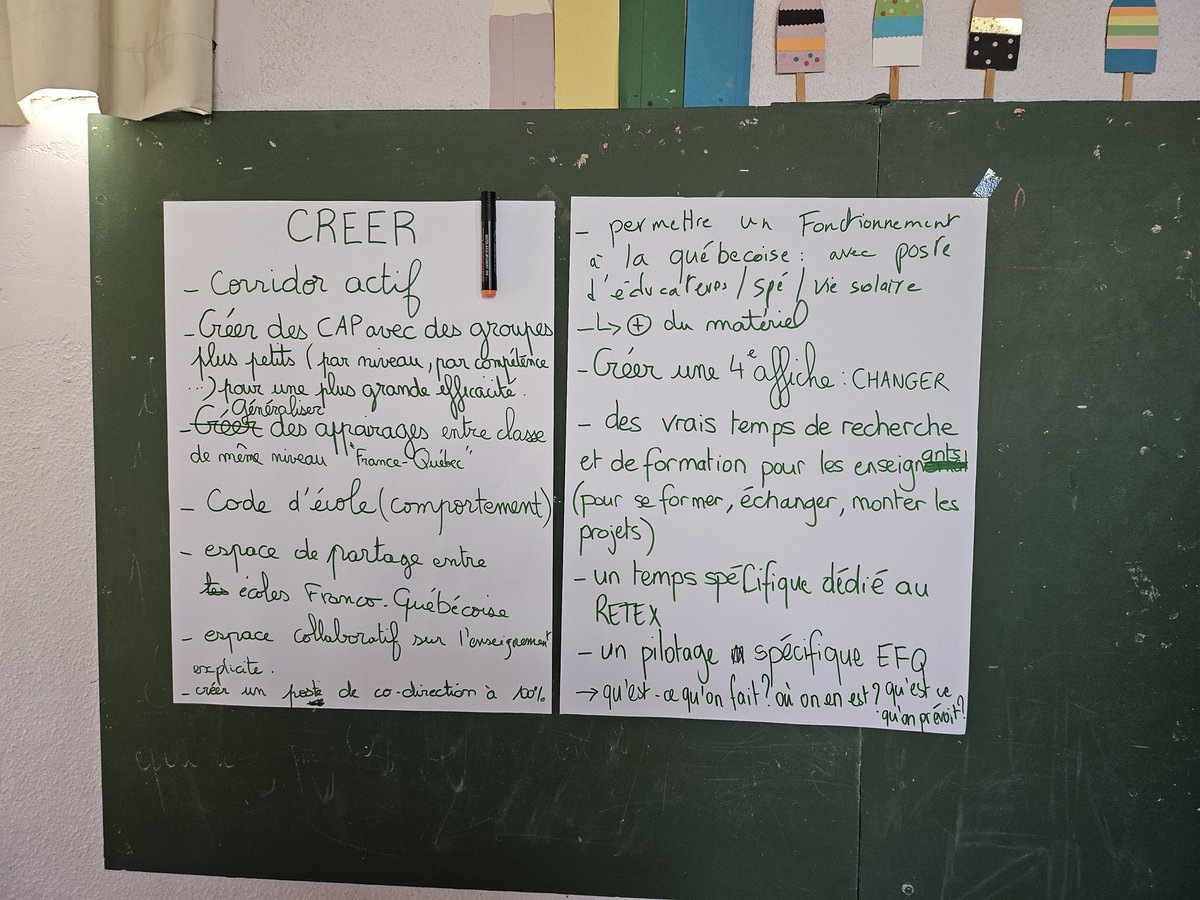 CREER
- Corridor actif
- Créer des CAP avec des groupes
plus petits (par niveau, par compétence
...) pour une plus grande efficacité.
Généraliser
- Créer des apparages entre classe
de même niveau "France-Québec"
- Code d'école (comportement)
- espace de partage entre
les écoles Franco-Québécoise
- espace collaboratif sur l'enseignement
explicite.
- créer un poste de co-direction à 100%
- permettre un Fonctionnement
à la québecoise : avec poste
d'éducateurs / spé / vie solaire
- ↳ ⊕ du matériel
- Créer une 4e affiche : CHANGER
- des vrais temps de recherche
et de formation pour les enseignants
(pour se former, échanger, monter les
projets)
- un temps spécifique dédié au
RETEX
- un pilotage spécifique EFQ
→ qu'est-ce qu'on fait ? où on en est ? qu'est ce
qu'on prévoit ?